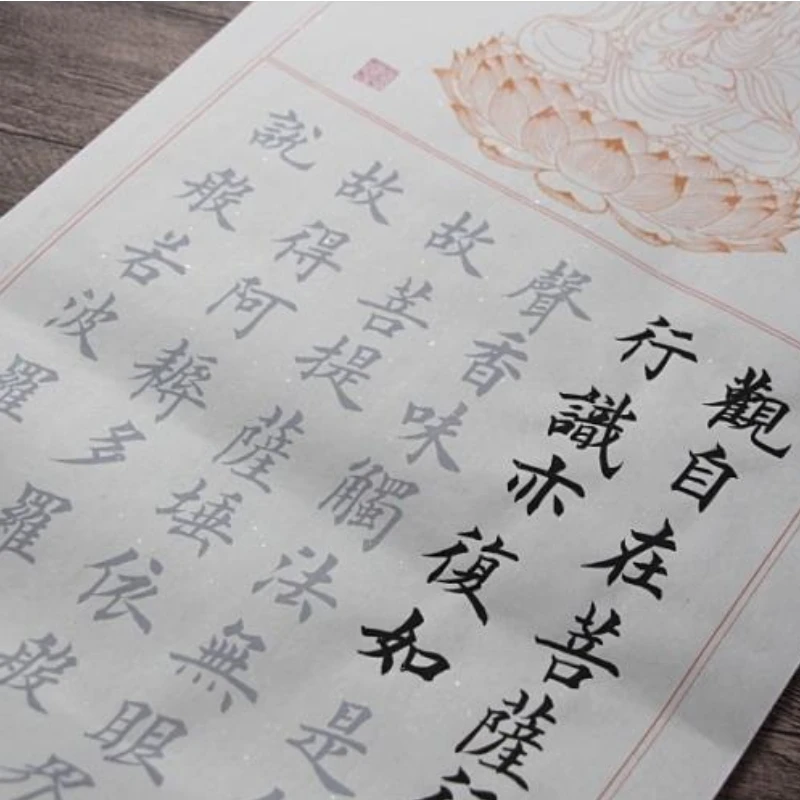 觀自在菩薩行
行識亦復如是
聲香味觸法無眼界
故菩提薩埵依般
故得阿耨多羅
說般若波羅